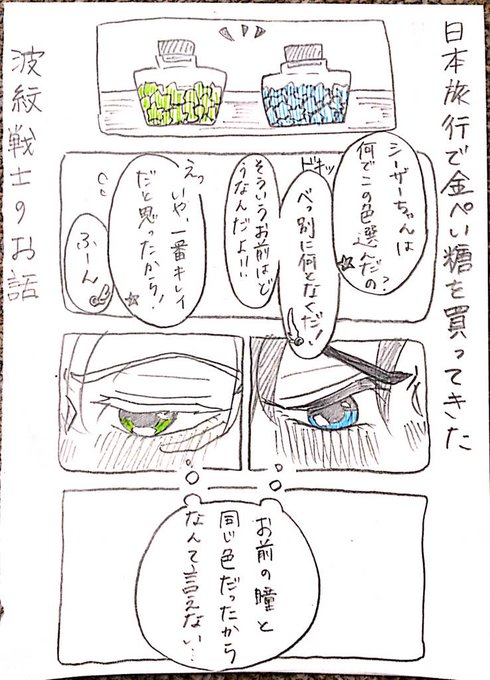 日本旅行で金ぺい糖を買ってきた
波紋戦士のお話
シーザーちゃんは
何でこの色選んだの?
ドキッ
べっ別に何となくだ!
そういうお前はど
うなんだよ!!
えっ
いや、一番キレイ
だと思ったから!
ふーん
お前の瞳と
同じ色だったから
なんて言えない…